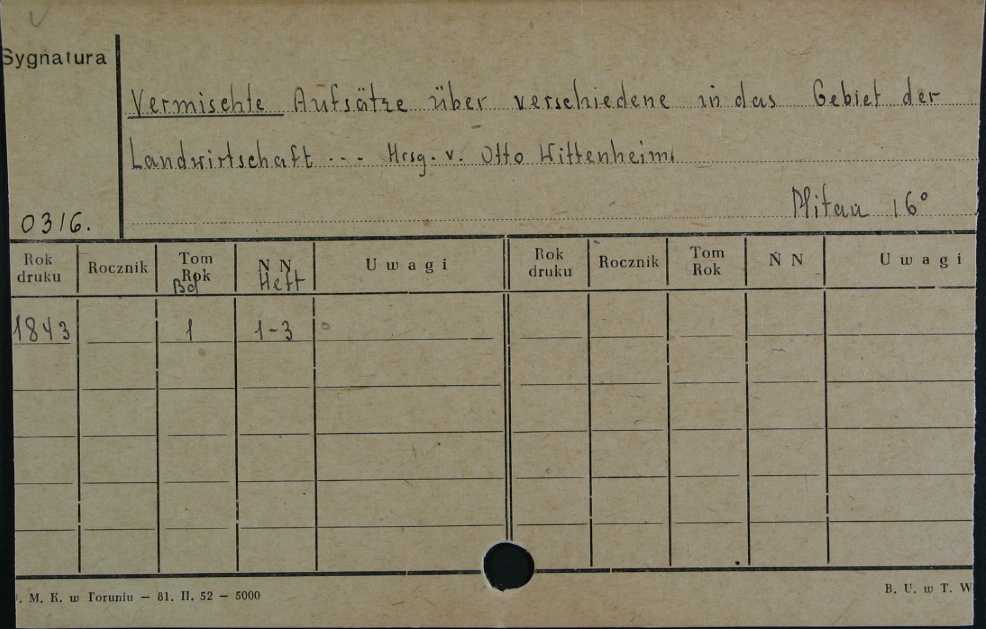 Sygnatura
Vermischte Aufsätze über verschiedene in das Gebiet der
Landwirtschaft --- Hrsg. v. Otto Wittenheim
Mitau 16°
0316.
Rok druku Rocznik Tom Rok Bd N N Heft Uwagi Rok druku Rocznik Tom Rok N N Uwagi
1843 1 1-3
. M. K. w Toruniu — 81. II. 52 — 5000
B. U. w T. W